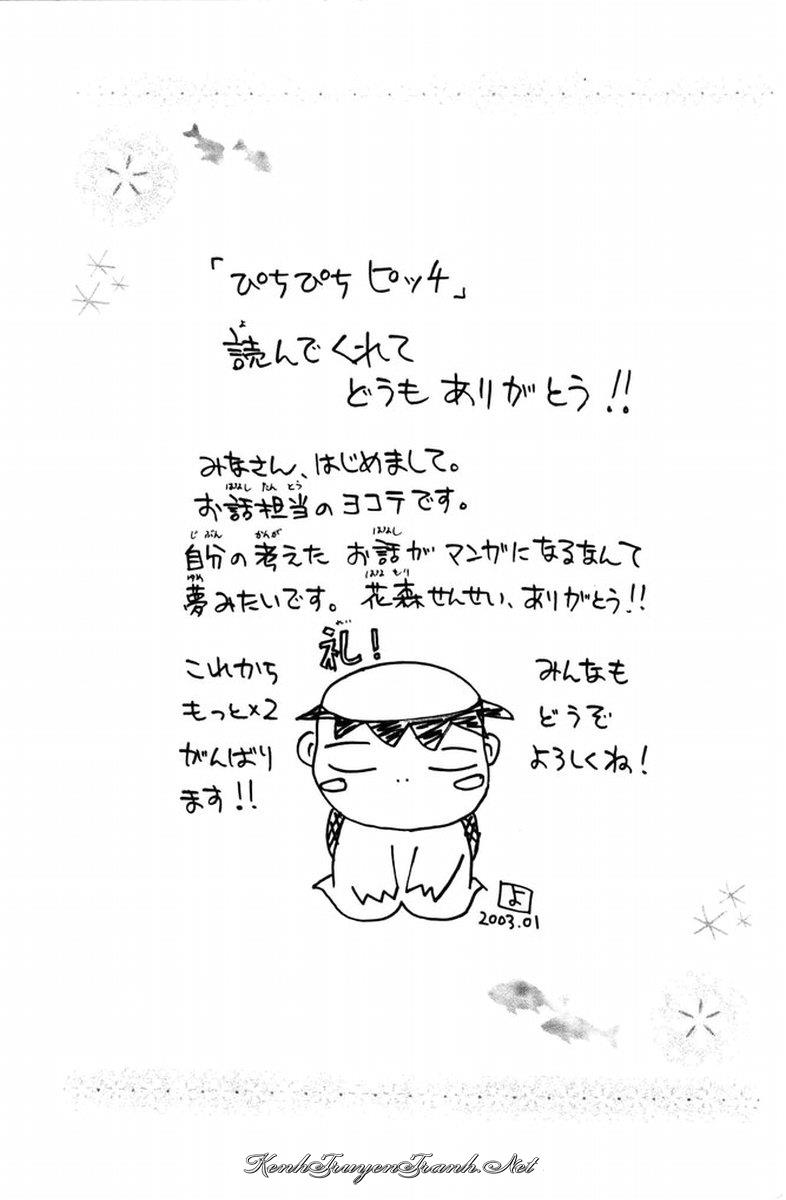 「ぴちぴちピッチ」
よ
読んでくれて
どうもありがとう!!
みなさん、はじめまして。
はなし たん とう
お話担当のヨコテです。
じ ぶん かんが はなし
自分の考えた お話がマンガになるなんて
ゆめ はな もり
夢みたいです。花森せんせい、ありがとう!!
れい
礼!
これから
もっと×2
がんばり
ます!!
みんなも
どうぞ
よろしくね!
よ
2003.01
KenhTruyenTranh.Net